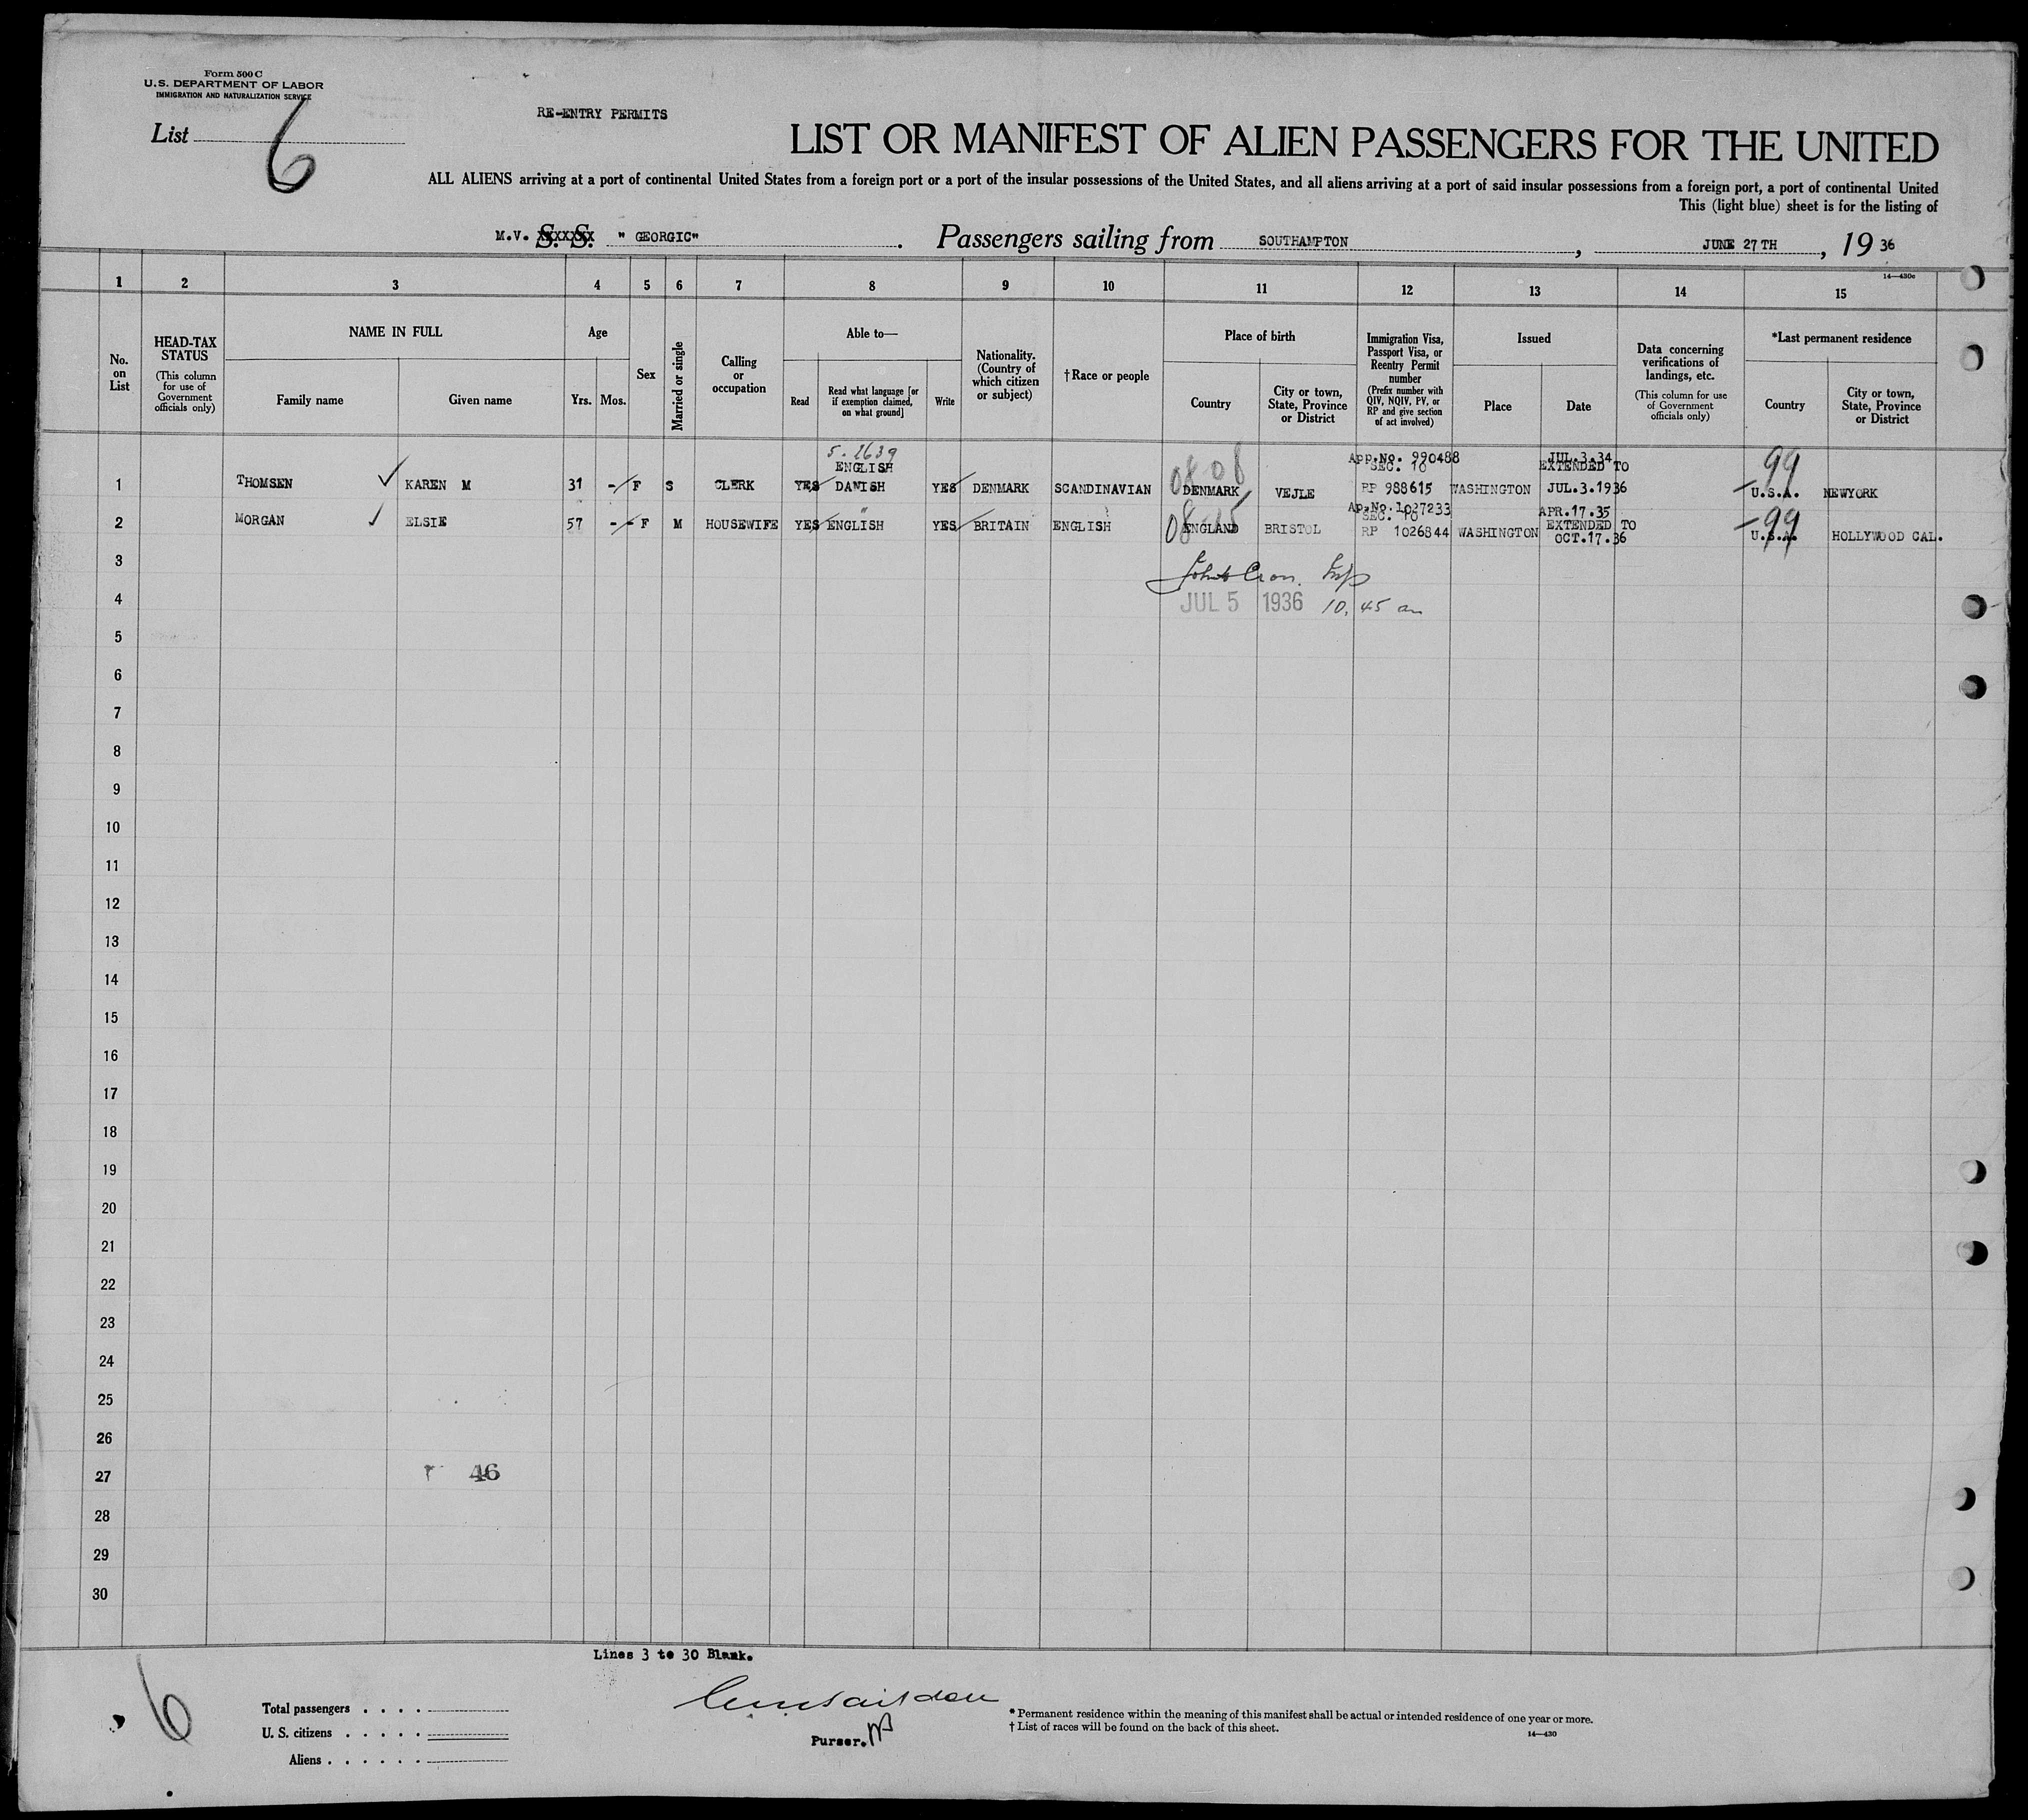 Form 500 C
U. S. DEPARTMENT OF LABOR
IMMIGRATION AND NATURALIZATION SERVICE
List 6
RE-ENTRY PERMITS
LIST OR MANIFEST OF ALIEN PASSENGERS FOR THE UNITED
ALL ALIENS arriving at a port of continental United States from a foreign port or a port of the insular possessions of the United States, and all aliens arriving at a port of said insular possessions from a foreign port, a port of continental United
This (light blue) sheet is for the listing of
M.V. S. S. " GEORGIC" . Passengers sailing from SOUTHAMPTON , JUNE 27TH , 19 36
14—430c
1 2 3 4 5 6 7 8 9 10 11 12 13 14 15
No. on List
HEAD-TAX STATUS
(This column for use of Government officials only)
NAME IN FULL
Family name
Given name
Age
Yrs. Mos.
Sex
Married or single
Calling or occupation
Able to—
Read
Read what language [or if exemption claimed, on what ground]
Write
Nationality. (Country of which citizen or subject)
†Race or people
Place of birth
Country
City or town, State, Province or District
Immigration Visa, Passport Visa, or Reentry Permit number
(Prefix number with QIV, NQIV, PV, or RP and give section of act involved)
Issued
Place
Date
Data concerning verifications of landings, etc.
(This column for use of Government officials only)
*Last permanent residence
Country
City or town, State, Province or District
5-2639
ENGLISH 08 08 App.No. 990488 JUL.3.34 99
SEC. 10 EXTENDED TO
1 THOMSEN KAREN M 31 - F S CLERK YES DANISH YES DENMARK SCANDINAVIAN DENMARK VEJLE RP 988615 WASHINGTON JUL.3.1936 U.S.A. NEWYORK
Ap.No.1027233 APR.17.35
SEC. 10 EXTENDED TO 99
2 MORGAN ELSIE 57 - F M HOUSEWIFE YES ENGLISH " YES BRITAIN ENGLISH ENGLAND BRISTOL RP 1026844 WASHINGTON OCT.17.36 U.S.A. HOLLYWOOD CAL.
3
4 JUL 5 1936 10.45 am
5
6
7
8
9
10
11
12
13
14
15
16
17
18
19
20
21
22
23
24
25
26
27 46
28
29
30
Lines 3 to 30 Blank.
6
Total passengers . . . .
U. S. citizens . . . . .
Aliens . . . . . .
Purser.
* Permanent residence within the meaning of this manifest shall be actual or intended residence of one year or more.
† List of races will be found on the back of this sheet.
14—430